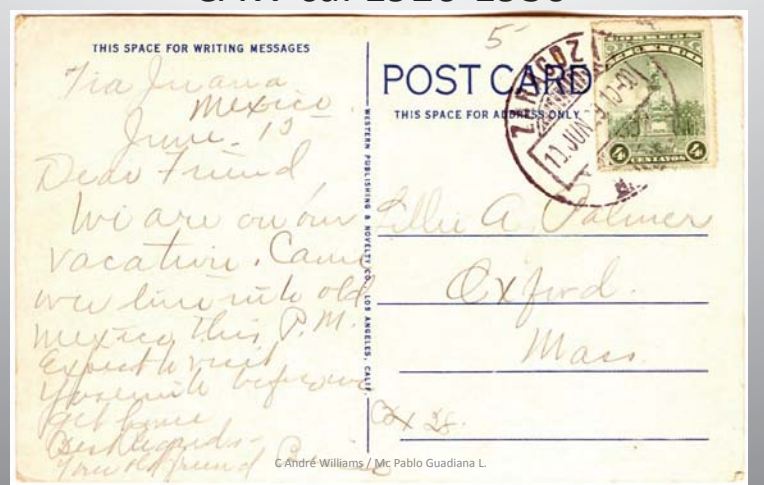 THIS SPACE FOR WRITING MESSAGES
Tia Juana
Mexico
June 13
Dear Friend
We are on our
vacation. Came
over line into old
Mexico this P.M.
Expect to visit
Yosemite before we
get home
Best Regards
Your old friend
WESTERN PUBLISHING & NOVELTY CO., LOS ANGELES, CALIF.
5
POST CARD
THIS SPACE FOR ADDRESS ONLY
ZARAGOZ
13. JUN
CORREOS
MEXICO
4 CENTAVOS 4
Lillie A. Palmer
Oxford.
Mass.
C André Williams / Mc Pablo Guadiana L.